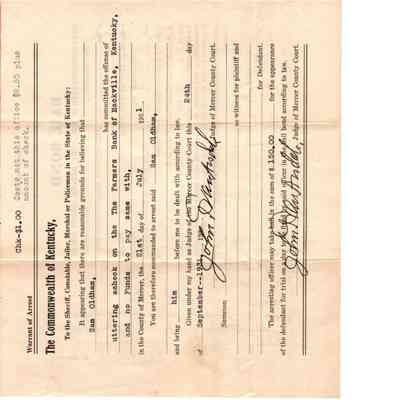 Chk-$1.00 Costs not this office $2.50 plus
amount of check.
Warrant of Arrest
The Commonwealth of Kentucky,
To the Sheriff, Constable, Jailer, Marshal or Policeman in the State of Kentucky:
It appearing that there are reasonable grounds for believing that
Sam Oldham,
has committed the offense of
uttering acheck on the The Farmers Bank of Kentucky,
and no funds to pay same with,
in the County of Mercer, the 21st day of July 1931
You are therefore commanded to arrest said Sam Oldham,
and bring him before me to be dealt with according to law.
Given under my hand as Judge of the Mercer County Court this 24th day
of September--1931
Judge of Mercer County Court.
Summon
as witness for plaintiff and
for Defendant.
The arresting officer may take bail in the sum of $ 150.00 for the appearance
of the defendant for trial on said officer is bond according to law.
Judge of Mercer County Court.